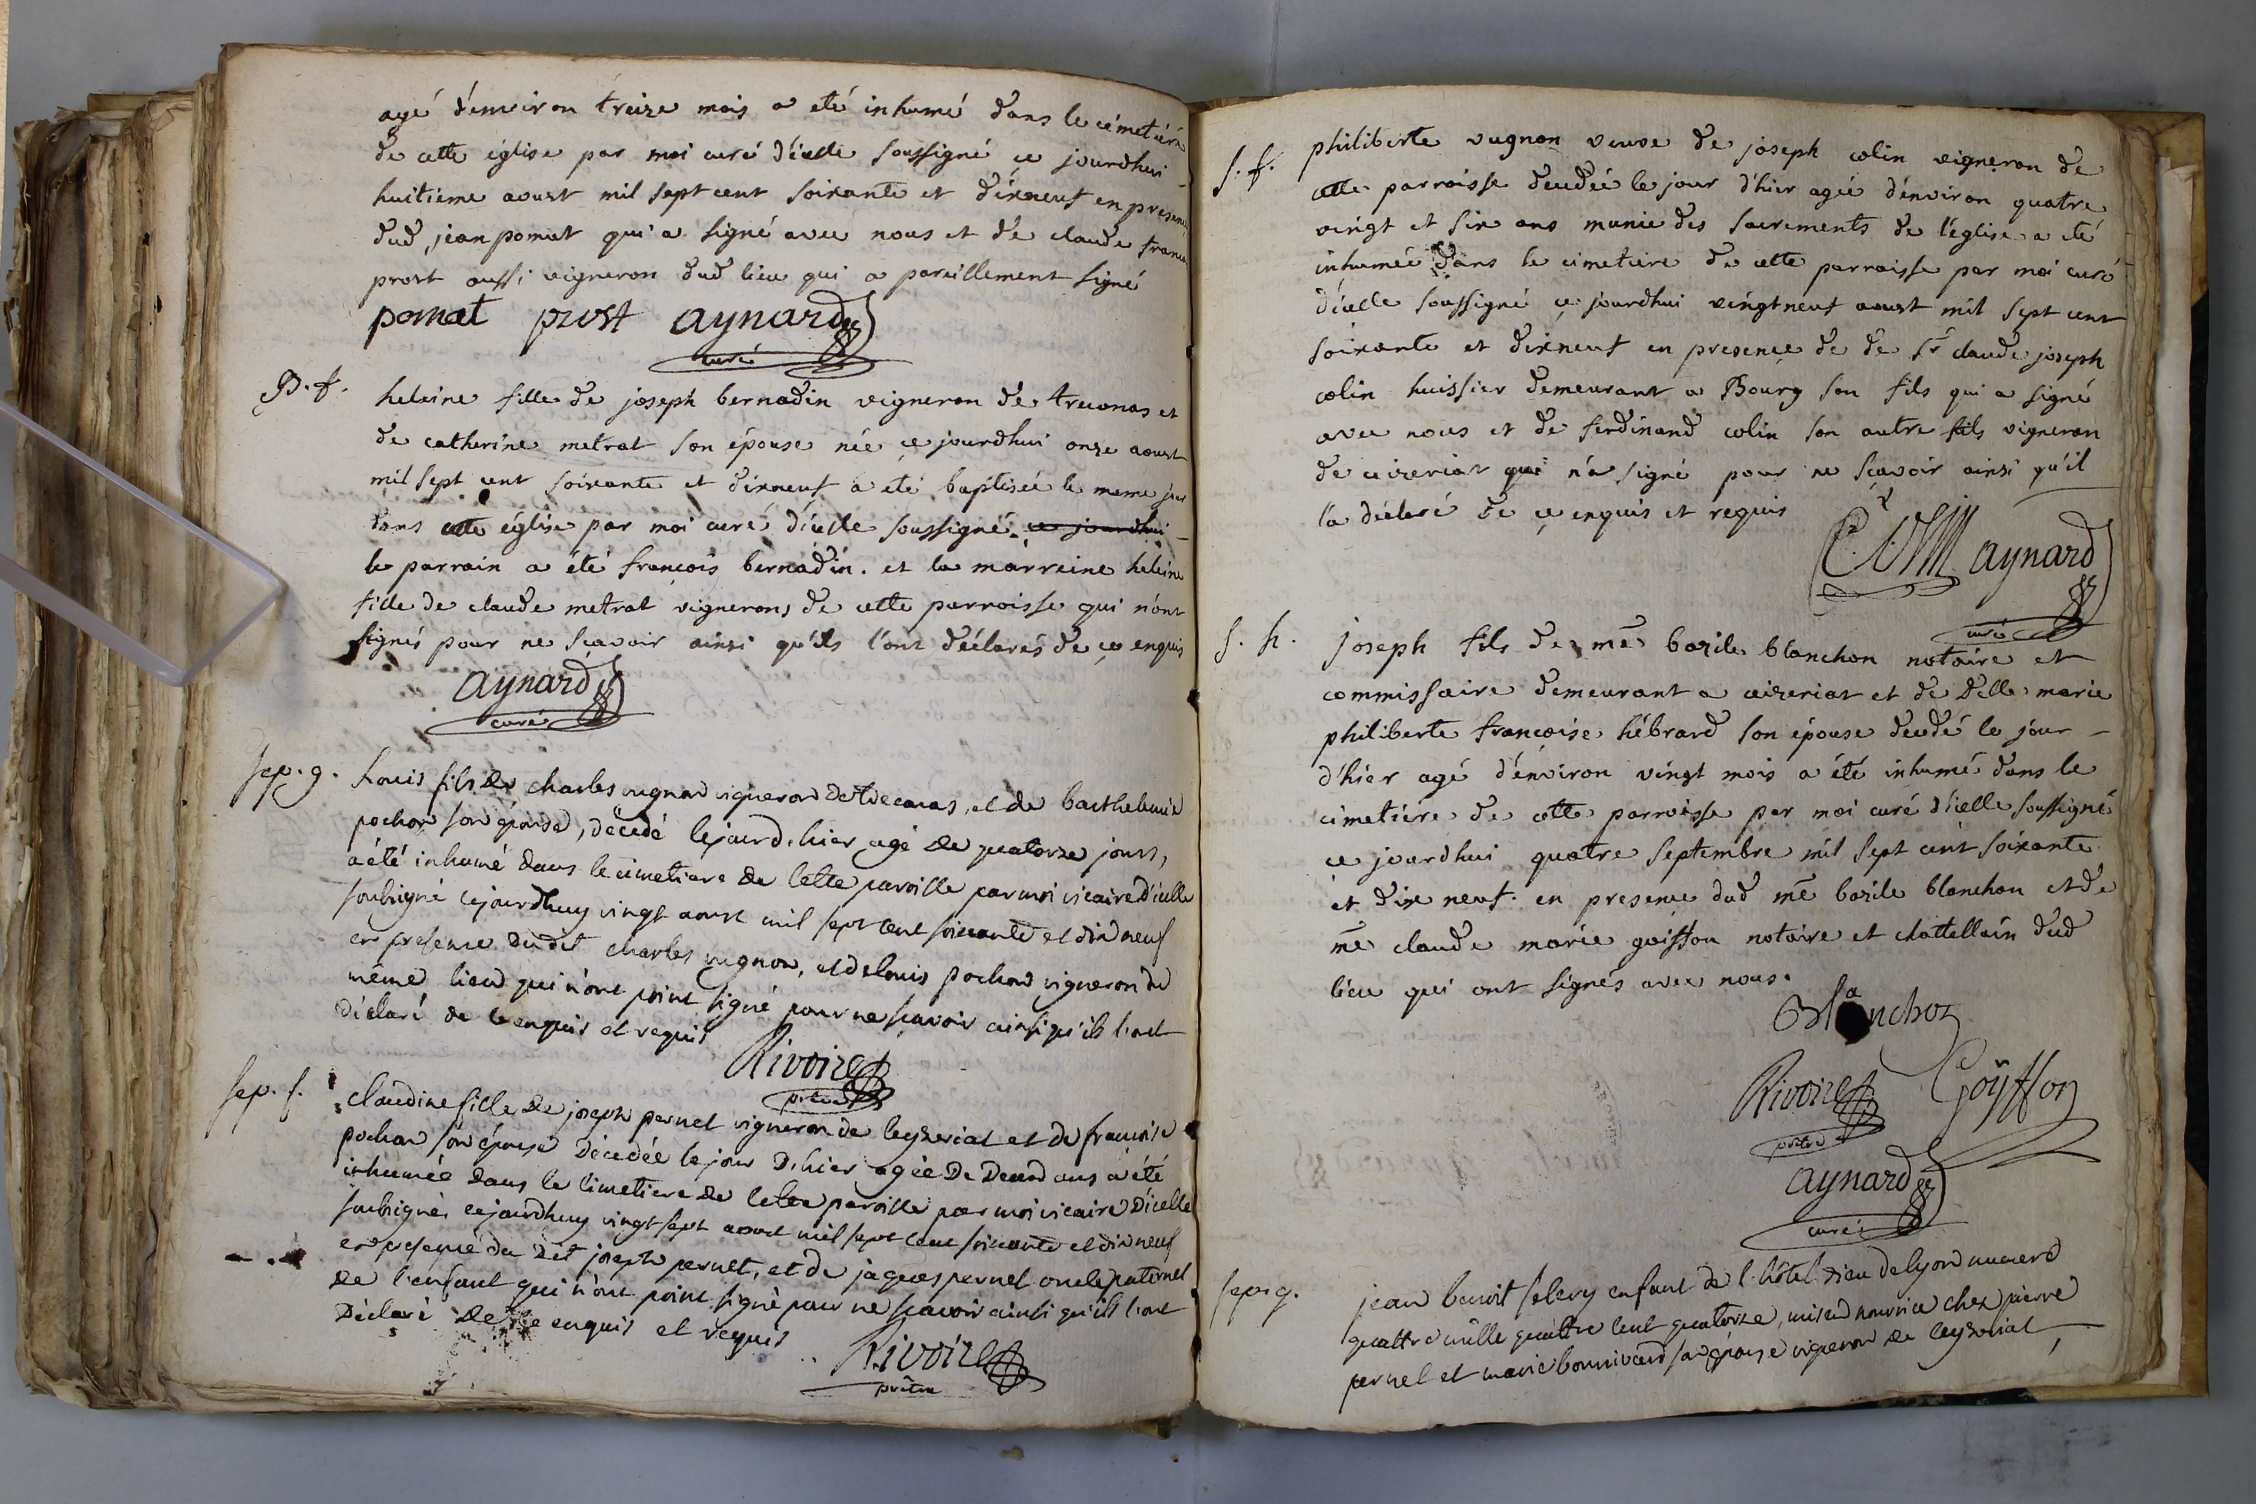 agé d'environ treize mois a eté inhumé dans le cémetiére
de cette église par moi curé d'icelle soussigné ce jourdhui
huitieme aoust mil sept cent soixante et dixneuf en presence
dud jean pomat qui a signé avec nous et de claude franc
prost aussi vigneron dud lieu qui a pareillement signé
pomat prost aynard
curé
B. f.
heleine fille de joseph bernadin vigneron de treconas et
de catherine metrat son épouse née ce jourdhui onze aoust
mil sept cent soixante et dixneuf a eté baptisée le meme jour
dans cette église par moi curé d'icelle soussigné ce jourdhui
le parrain a été françois bernadin. et la marreine heleine
fille de claude metrat vignerons de cette parroisse qui n'ont
signés pour ne sçavoir ainsi qu'ils l'ont déclarés de ce enquis
aynard
curé
sep. g.
Louis fils de charles vugnon vigneron de treconas, et de barthelemie
pochon son épouse, décedé le jour d'hier agé de quatorze jours,
a été inhumé dans le cimetiere de cette paroisse par moi vicaire d'icelle
soubsigné cejourdhuy vingt aoust mil sept cent soixante et dix neuf
en presence du dit charles vugnon, et de louis pochon vigneron du
même lieu qui n'ont point signé pour ne sçavoir ainsi qu'ils l'ont
déclaré de ce enquis et requis
Rivoire
prêtre
sep. f.
claudine fille de joseph pernet vigneron de ceyzeriat et de françoise
pochon son épouse décedée le jour d'hier agée de deux ans a été
inhumée dans le cimetiere de cette paroisse par moi vicaire d'icelle
soubsigné, cejourdhuy vingt sept aoust mil sept cent soixante et dix neuf
en presence du dit joseph pernet, et de jaques pernet oncle paternel
de l'enfant qui n'ont point signé pour ne sçavoir ainsi qu'ils l'ont
déclaré de ce enquis et requis
Rivoire
prêtre
s. f.
philiberte vugnon veuve de joseph colin vigneron de
cette parroisse decedée le jour d'hier agée d'environ quatre
vingt et six ans munie des sacrements de l'église a eté
inhumée dans le cimetiére de cette parroisse par moi curé
d'icelle soussigné ce jourdhui vingtneuf aoust mil sept cent
soixante et dixneuf en presence de de sr claude joseph
colin huissier demeurant a Bourg son fils qui a signé
avec nous et de ferdinand colin son autre fils vigneron
de ceizeriat qui n'a signé pour ne sçavoir ainsi qu'il
l'a déclaré de ce enquis et requis
Colin aynard
curé
s. h.
joseph fils de me bazile blanchon notaire et
commissaire demeurant a ceizeriat et de Delle marie
philiberte françoise hébrard son épouse decedé le jour
d'hier agé d'environ vingt mois a été inhumé dans le
cimetiére de cette parroisse par moi curé d'icelle soussigné
ce jourdhui quatre septembre mil sept cent soixante
et dix neuf. en presence dud me bazile blanchon et de
me claude marie goiffon notaire et chattellain dud
lieu qui ont signés avec nous.
Blanchon
Rivoire Goÿffon
prêtre
aynard
curé
sep. g.
jean benoit enfant de l'hôtel dieu de lyon numero
quattre mille quattre cent quatorze, mis en nourrice chez pierre
pernet et marie son épouse vigneron de ceyzeriat